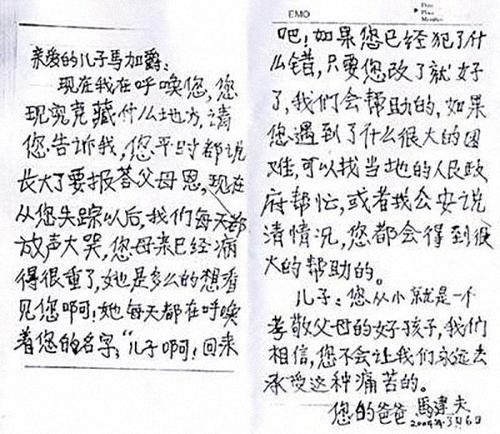 亲爱的儿子馬加爵:
现在我在呼唤您,您
现究竟藏什么地方,請
您告诉我,您平时都说
长大了要报荅父母恩,现在
从您失踪以后,我们每天都
放声大哭,您母亲已经病
得很重了,她是多么的想看
见您啊!她每天都在呼唤
着您的名字,"儿子啊!回来
EMO
Date
Place
Member
吧!如果您已经犯了什
么错,只要您改了就好
了,我们会帮助的,如果
您遇到了什么很大的困
难,可以找当地的人民政
府帮忙,或者找公安说
清情况,您都会得到很
大的帮助的。
儿子:您从小就是一个
孝敬父母的好孩子,我们
相信,您不会让我们永远去
承受这种痛苦的。
您的爸爸 馬建夫
2004年3月6日